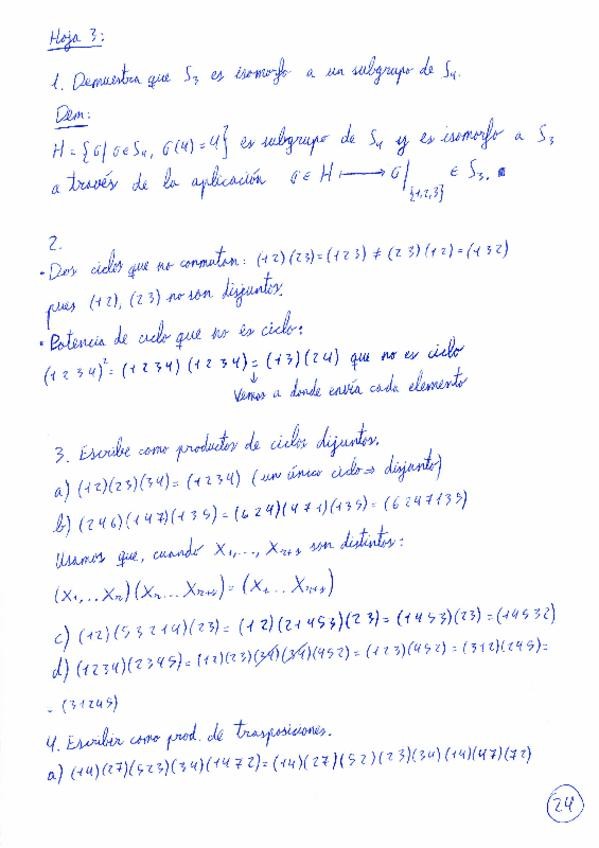 Hoja 3:
1. Demuestra que S₃ es isomorfo a un subgrupo de S₄.
Dem:
H = {σ / σ ∈ S₄, σ(4) = 4} es subgrupo de S₄ y es isomorfo a S₃
a través de la aplicación σ ∈ H ⟼ σ|_{1,2,3} ∈ S₃.
2.
• Dos ciclos que no conmutan: (12)(23) = (123) ≠ (23)(12) = (132)
pues (12), (23) no son disjuntos.
• Potencia de ciclo que no es ciclo:
(1234)² = (1234)(1234) = (13)(24) que no es ciclo
↓
Vemos a donde envía cada elemento
3. Escribe como productos de ciclos dijuntos.
a) (12)(23)(34) = (1234) (un único ciclo ⇒ disjunto)
b) (246)(147)(135) = (624)(471)(135) = (6247135)
Usamos que, cuando X₁, ..., Xₙ₊ₛ son distintos:
(X₁, .. Xₙ)(Xₙ ... Xₙ₊ₛ) = (X₁ ... Xₙ₊ₛ)
c) (12)(53214)(23) = (12)(21453)(23) = (1453)(23) = (14532)
d) (1234)(2345) = (12)(23)(34)(34)(452) = (123)(452) = (312)(245) =
= (31245)
4. Escribir como prod. de trasposiciones.
a) (14)(27)(523)(34)(1472) = (14)(27)(52)(23)(34)(14)(47)(72)
24